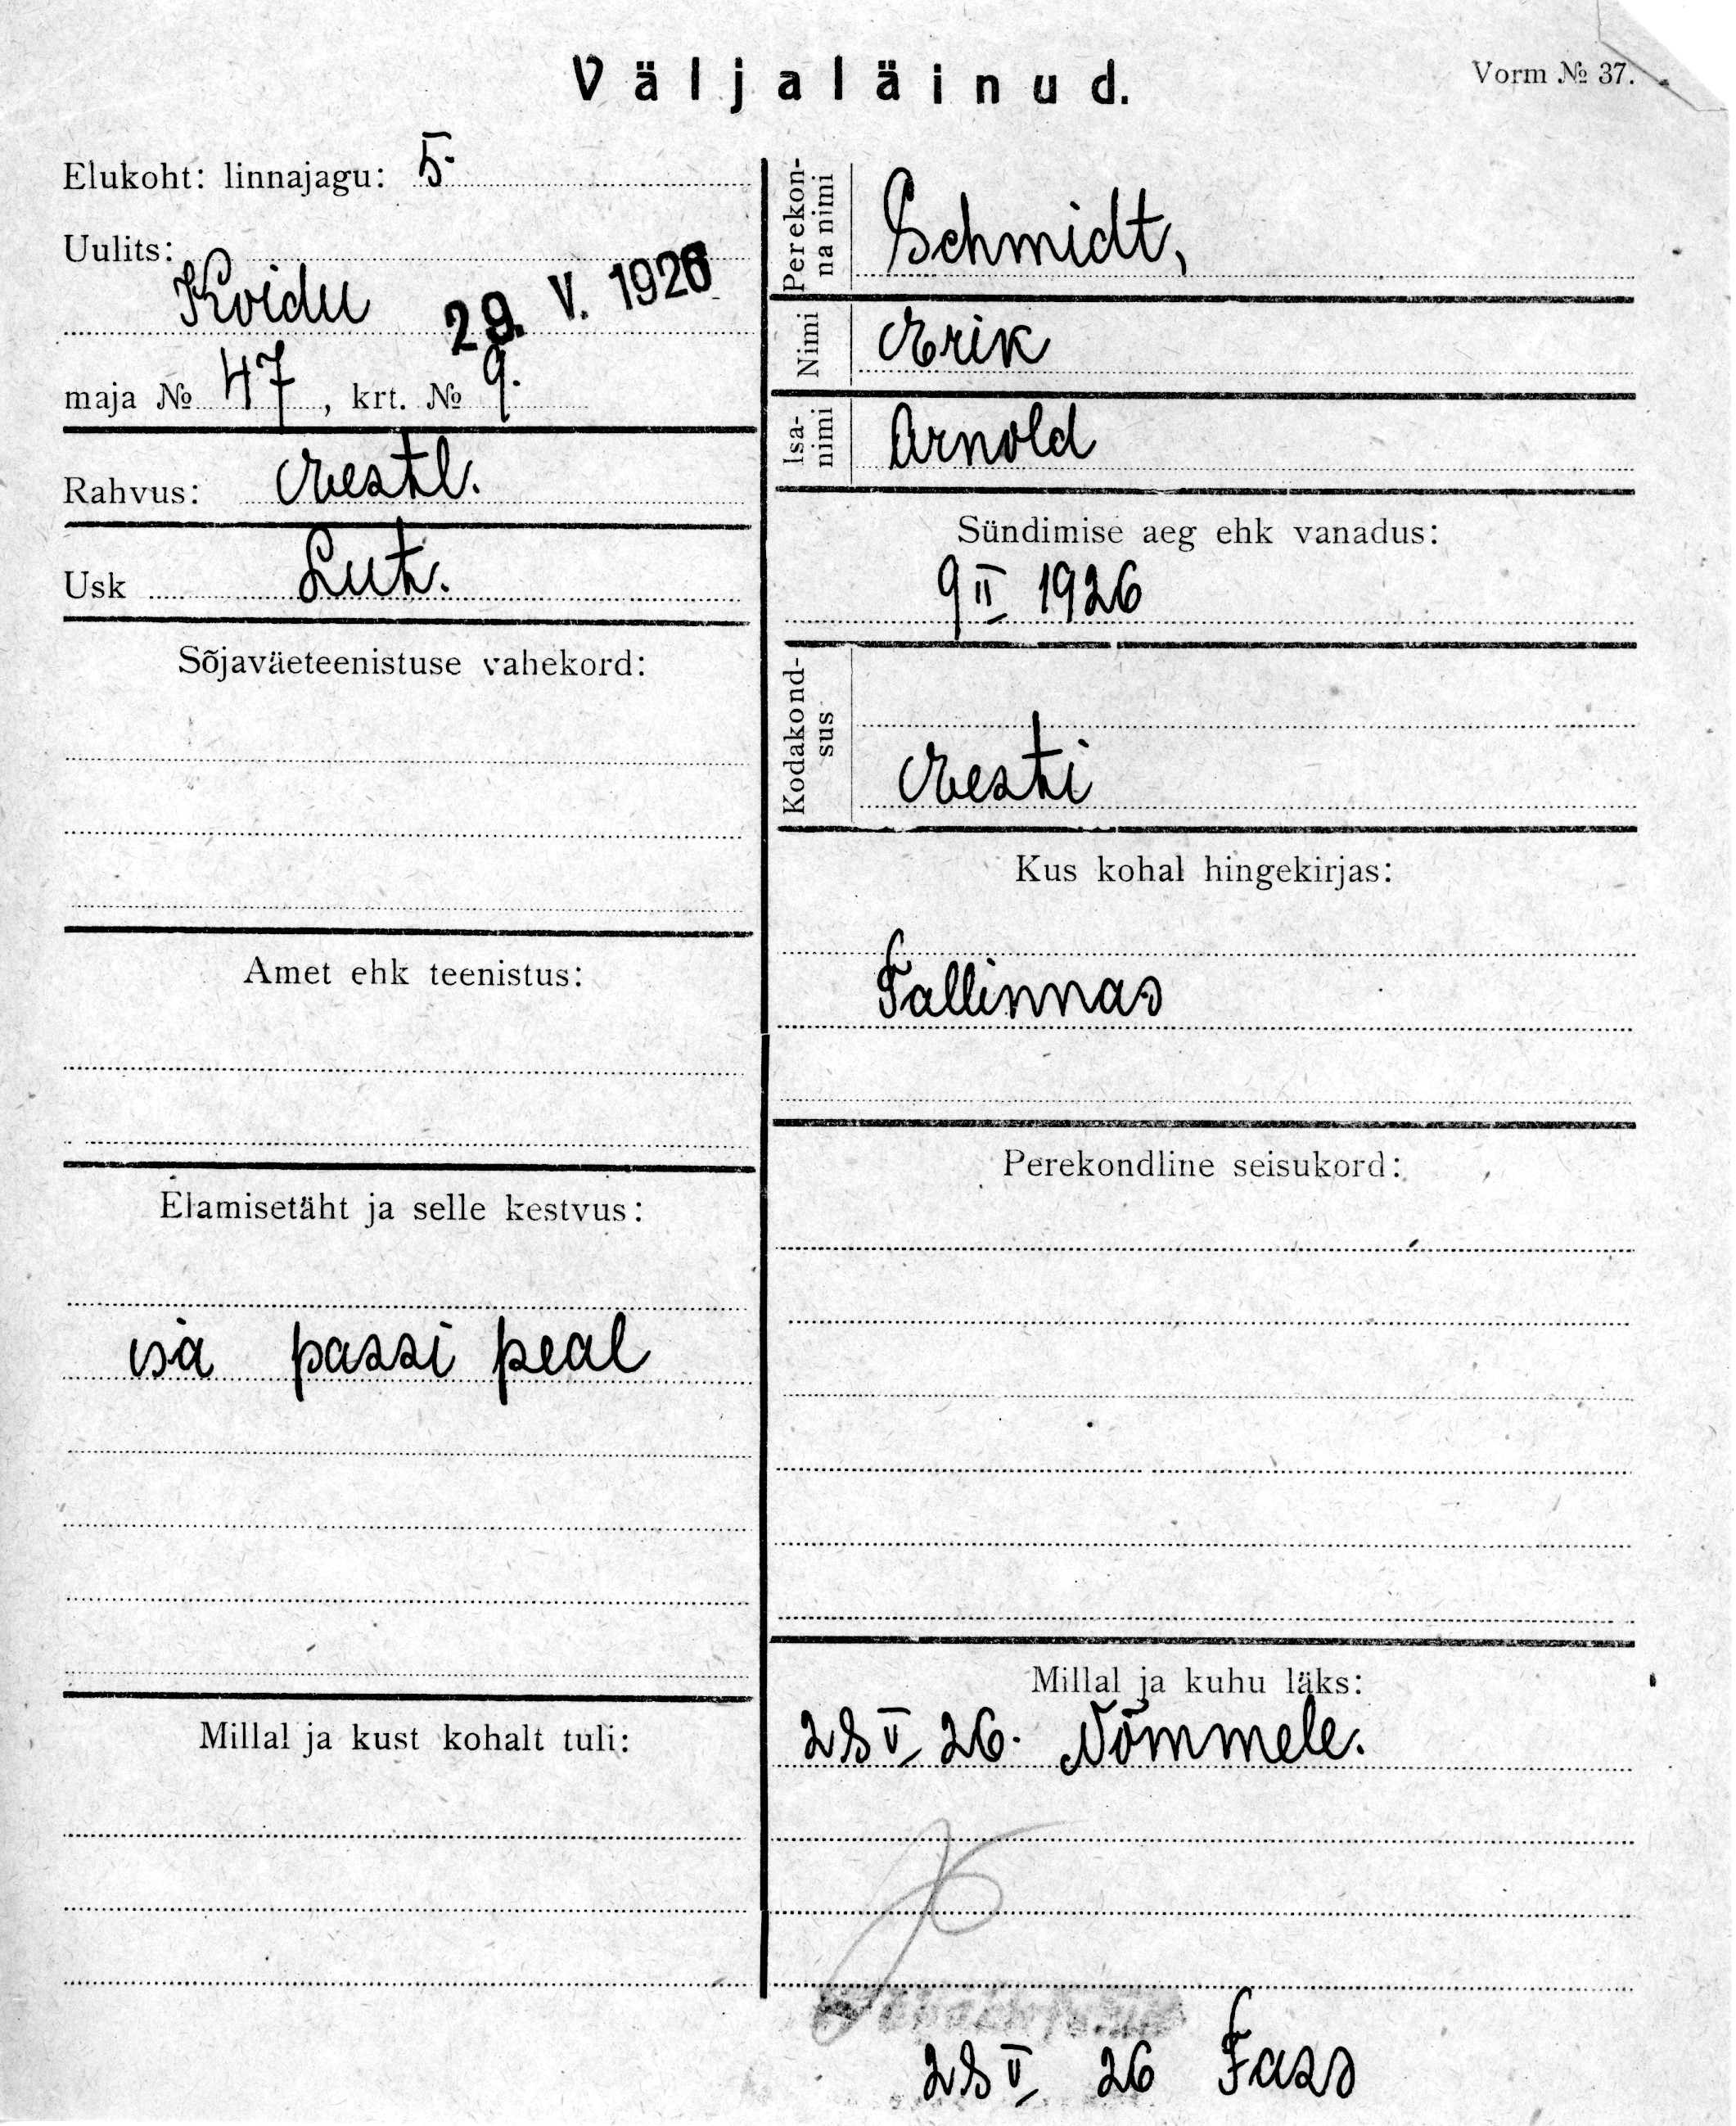 Väljaläinud.
Vorm № 37.
Elukoht: linnajagu: 5.
Uulits:
Koidu
29. V. 1926
maja № 47, krt. № 9.
Rahvus: Eestl.
Usk Lut.
Sõjaväeteenistuse vahekord:
Amet ehk teenistus:
Elamisetäht ja selle kestvus:
isa passi peal
Millal ja kust kohalt tuli:
Perekon-
na nimi
Schmidt,
Nimi Erik
Isa-
nimi
Arnold
Sündimise aeg ehk vanadus:
9 II 1926
Kodakond-
sus
Eesti
Kus kohal hingekirjas:
Tallinnas
Perekondline seisukord:
Millal ja kuhu läks:
28 V 26. Nõmmele.
28 V 26